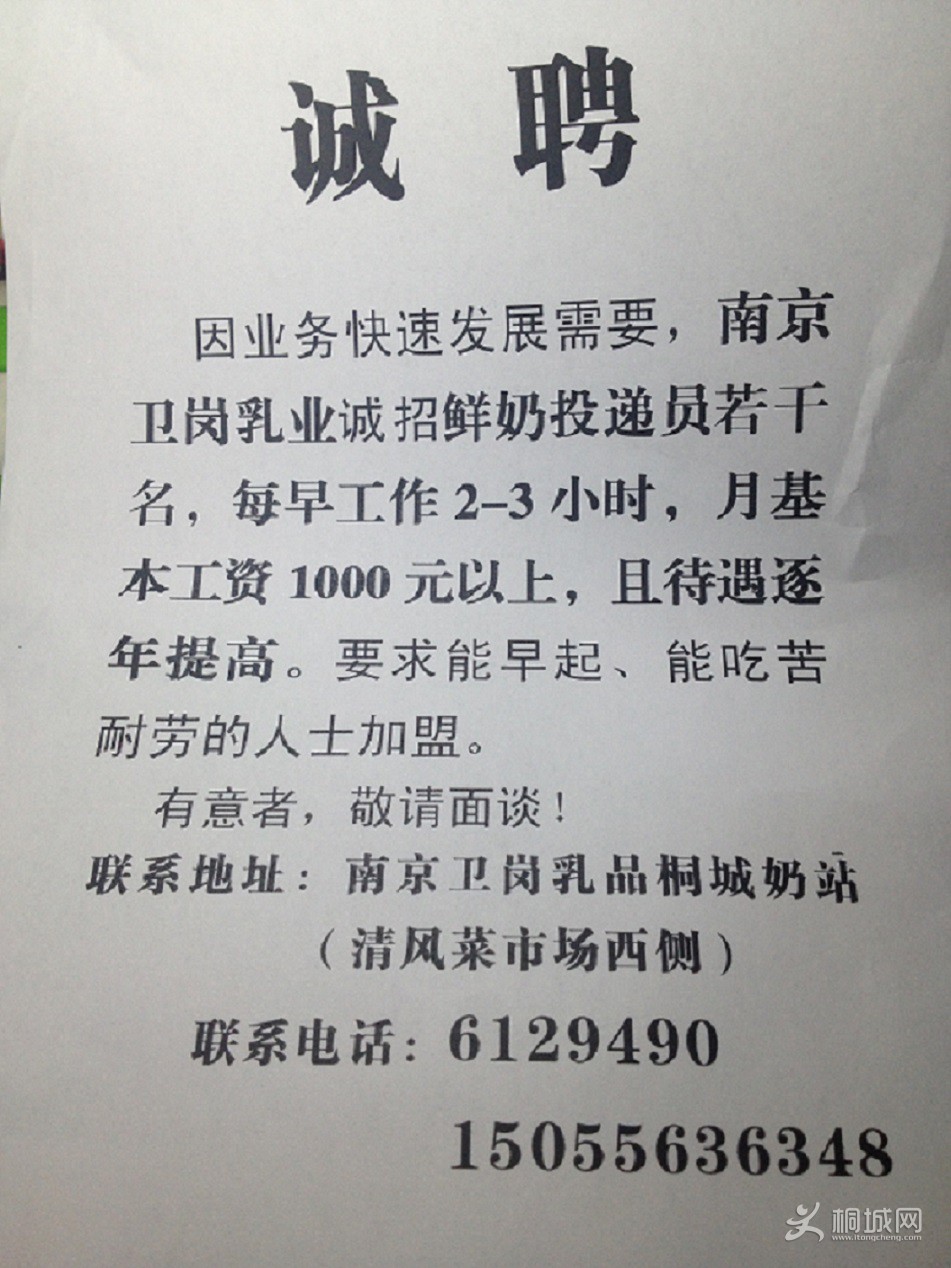 诚 聘
因业务快速发展需要，南京
卫岗乳业诚招鲜奶投递员若干
名，每早工作2-3小时，月基
本工资1000元以上，且待遇逐
年提高。要求能早起、能吃苦
耐劳的人士加盟。
有意者，敬请面谈！
联系地址：南京卫岗乳品桐城奶站
（清风菜市场西侧）
联系电话：6129490
15055636348
桐城网
www.itongcheng.com